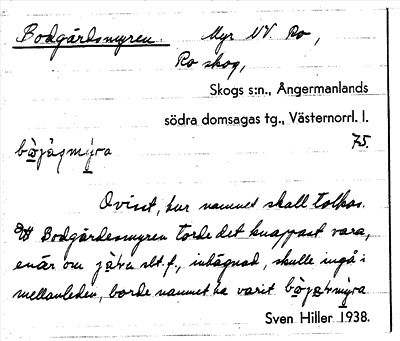 Bodgårdsmyren. Myr NV. Ro,
Ro skog,
Skogs s:n., Ångermanlands
södra domsagas tg., Västernorrl. l.
75.
Ovisst, hur namnet skall tolkas.
Att Bodgårdesmyren torde det knappast vara,
enär om slt. f., inhägnad, skulle ingå i
mellanleden, borde namnet ha varit
Sven Hiller 1938.